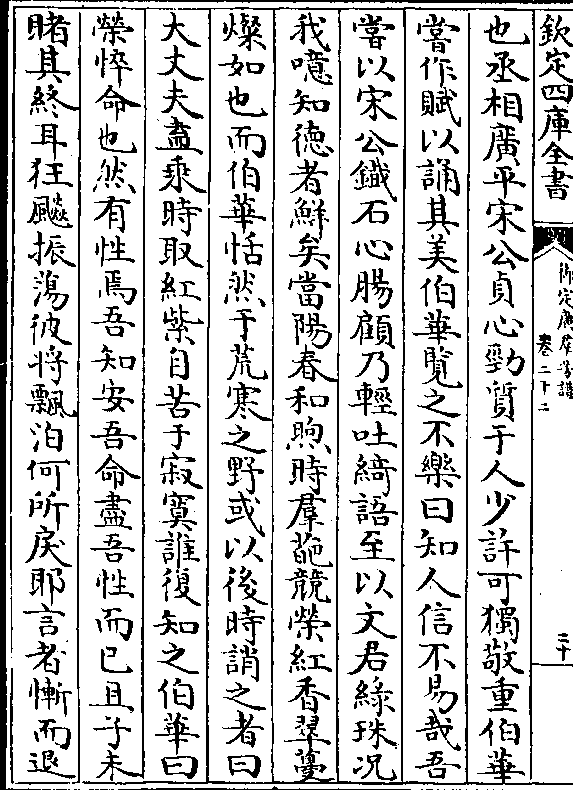 欽定四庫全書
御定廣羣芳譜
卷二十二
二十
也丞相廣平宋公貞心勁質于人少許可獨敬重伯華
嘗作賦以誦其美伯華覽之不樂曰知人信不易哉吾
嘗以宋公鐵石心腸顧乃輕吐綺語至以文君綠珠况
我噫知德者鮮矣當陽春和煦時羣葩競榮紅香翠蔓
燦如也而伯華恬然于荒寒之野或以後時誚之者曰
大丈夫盍乘時取紅紫自苦于寂寞誰復知之伯華曰
榮悴命也然有性焉吾知安吾命盡吾性而已且子未
睹其終耳狂飈振蕩彼将飄泊何所戾耶言者慚而退